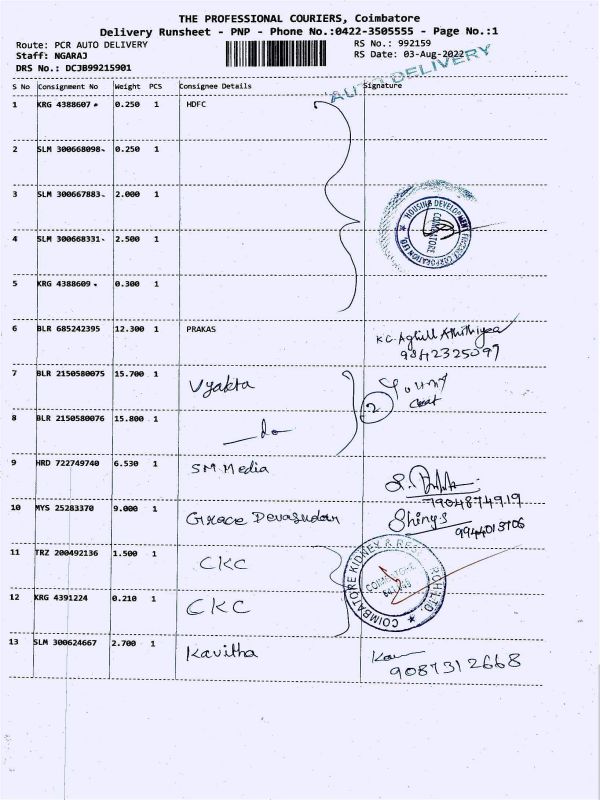 THE PROFESSIONAL COURIERS, Coimbatore
Delivery Runsheet - PNP - Phone No.:0422-3505555 - Page No.:1
Route: PCR AUTO DELIVERY RS No.: 992159
Staff: NGARAJ RS Date: 03-Aug-2022
DRS No.: DCJB99215901
AUTO DELIVERY
S No Consignment No Weight PCS Consignee Details Signature
1 KRG 4388607 0.250 1 HDFC
2 SLM 300668098 0.250 1
3 SLM 300667883 2.000 1
HOUSING DEVELOPMENT FINANCE CORPORATION LTD.
COIMBATORE
4 SLM 300668331 2.500 1
5 KRG 4388609 0.300 1
6 BLR 685242395 12.300 1 PRAKAS
9842325097
7 BLR 2150580075 15.700 1 Vyakta
2
8 BLR 2150580076 15.800 1 do
9 HRD 722749740 6.530 1 SM Media
7904874919
10 MYS 25283370 9.000 1 Grace Devasudan Shinys
11 TRZ 200492136 1.500 1 CKC
COIMBATORE KIDNEY & RES
COIMBATORE
12 KRG 4391224 0.210 1 CKC
13 SLM 300624667 2.700 1 Kavitha
9087312668